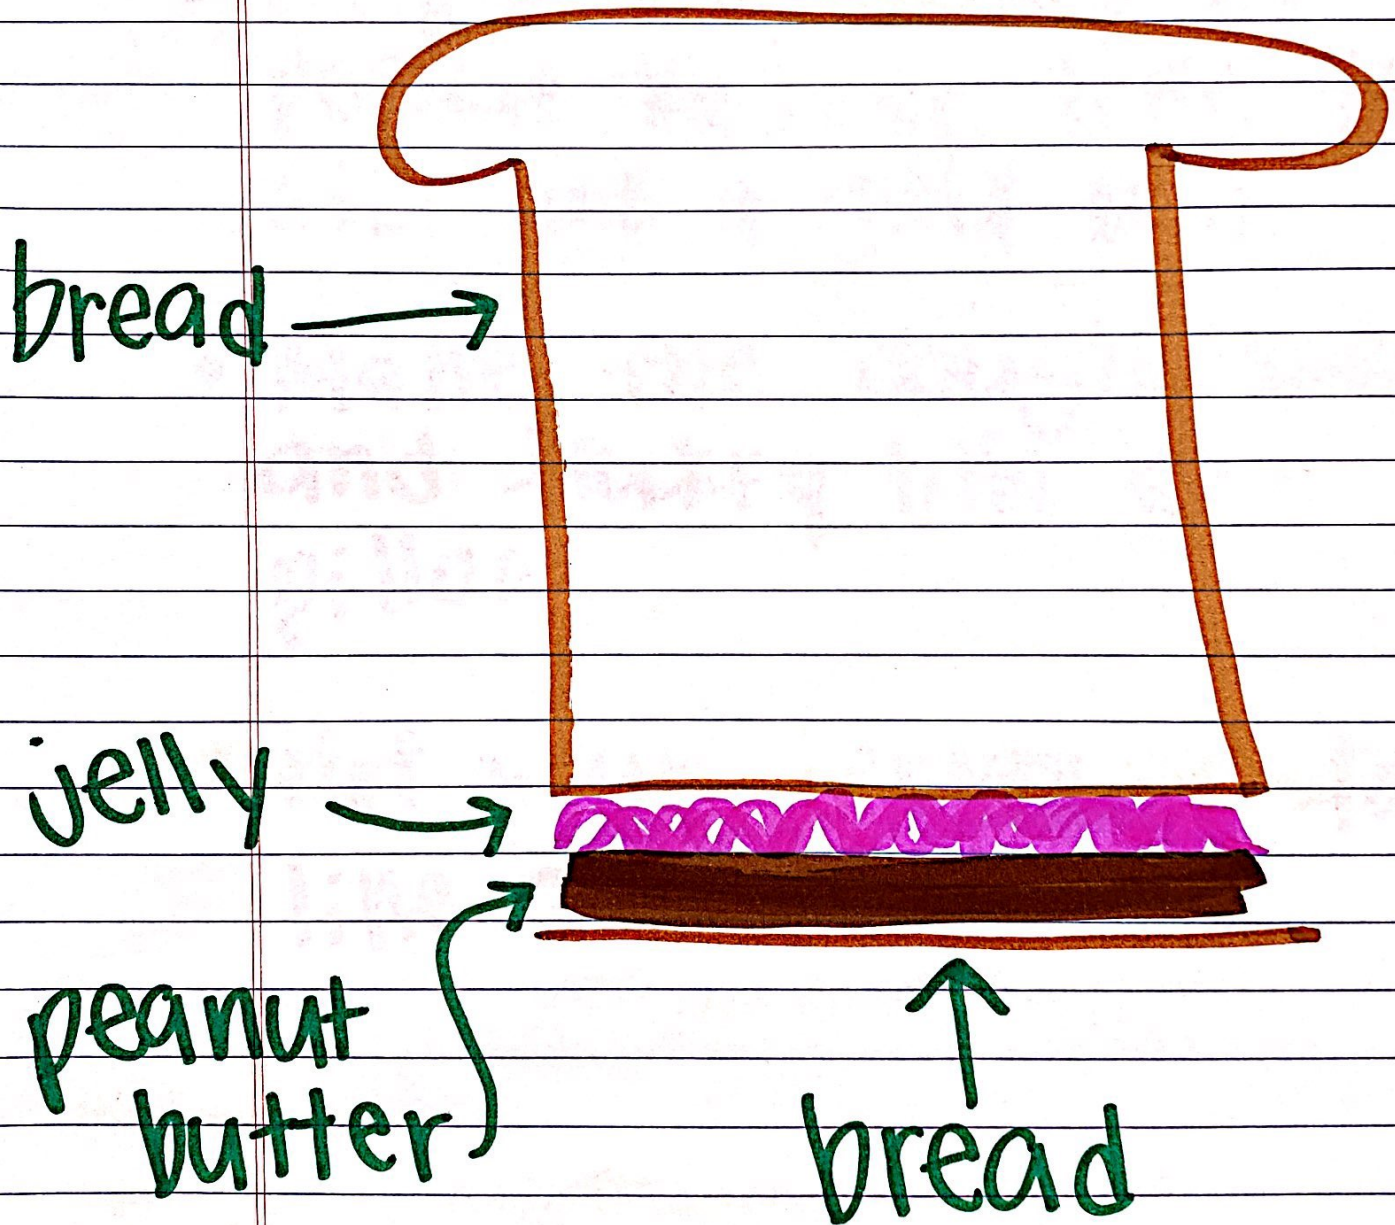 bread
jelly
peanut
butter
bread